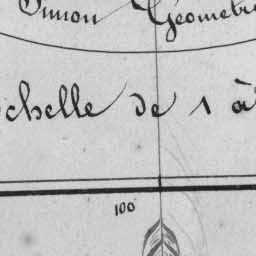 Simon Géometre
echelle de 1 à
100